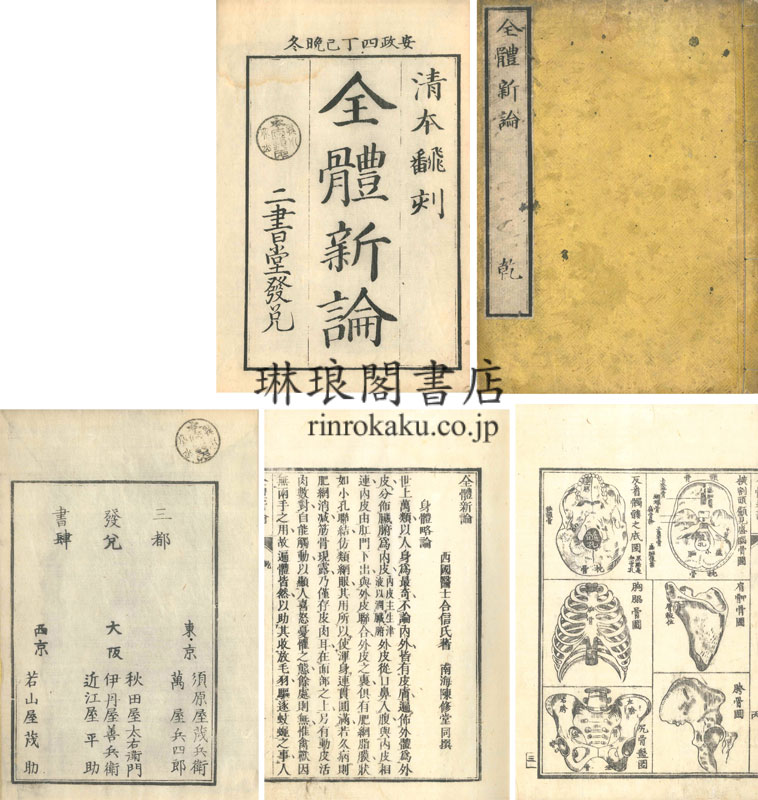 安政四丁巳晚冬
清本飜刻
全體新論
二書堂發兌
全體新論 乾
琳琅閣書店
rinrokaku.co.jp
三都
發兌
書肆
東京 須原屋茂兵衛
萬屋兵四郎
大阪 秋田屋太右衛門
伊丹屋善兵衛
近江屋平助
西京 若山屋茂助
全體新論
身體略論
西國醫士合信氏著 南海陳修堂同撰
世上萬類以人身爲最奇不論內外皆有皮膚遍佈外體爲外
皮分佈臟腑爲內皮內皮主生津液以潤臟腑外皮從口鼻入腹與內皮相
連內皮由肛門下出與外皮聯合外皮之裏俱有肥網脂膜狀
如小孔聯結仿類網眼其用所以使渾身連貫圓滿若久病則
肥網消减筋骨現露乃僅存皮肉耳在面部之上另有動皮活
肉數對自能觸動以顯人喜怒憂懼之態餘處則無惟禽獸因
無兩手之用故遍體皆然以助其收放毛羽驅逐蚊蠅之事人
反看髑髏之底圖
肩胛骨圖
胸膈骨圖
胯骨圖
尻骨盤圖
三